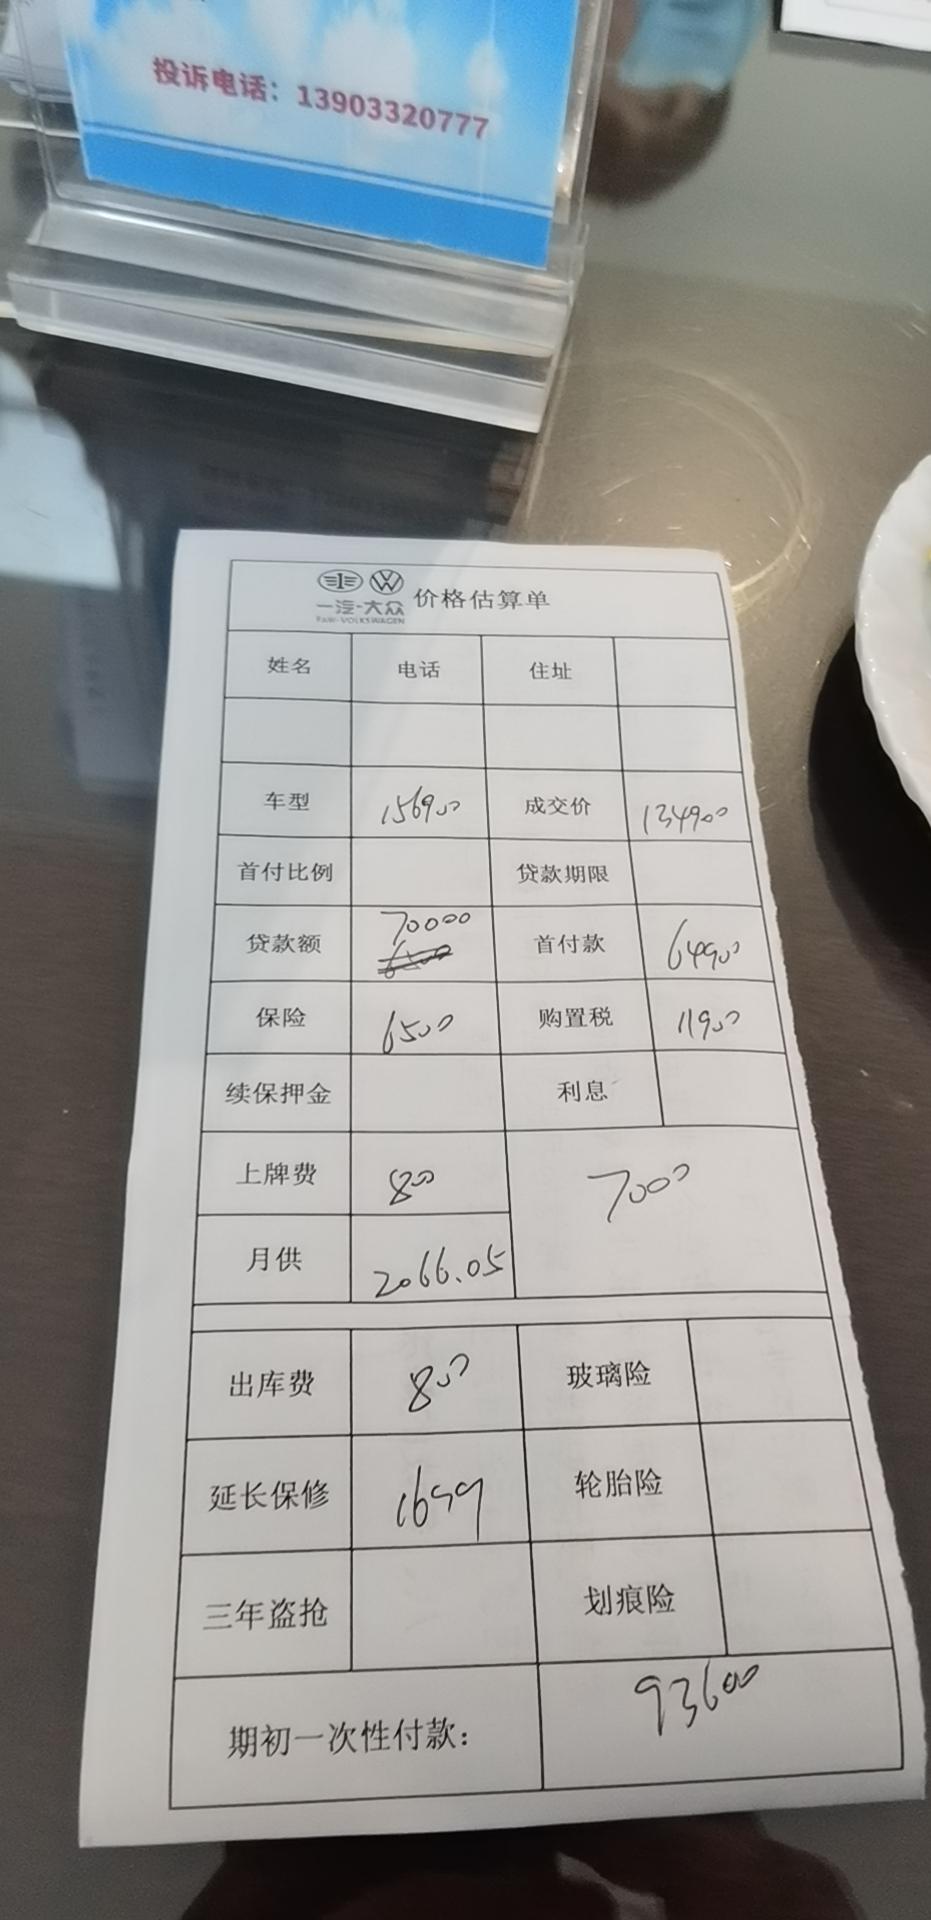 投诉电话：13903320777
一汽-大众 价格估算单
FAW-VOLKSWAGEN
姓名 电话 住址
车型 156900 成交价 134900
首付比例 贷款期限
贷款额 70000 首付款 64900
保险 6500 购置税 11900
续保押金 利息
上牌费 800 7000
月供 2066.05
出库费 800 玻璃险
延长保修 1699 轮胎险
三年盗抢 划痕险
期初一次性付款： 93600